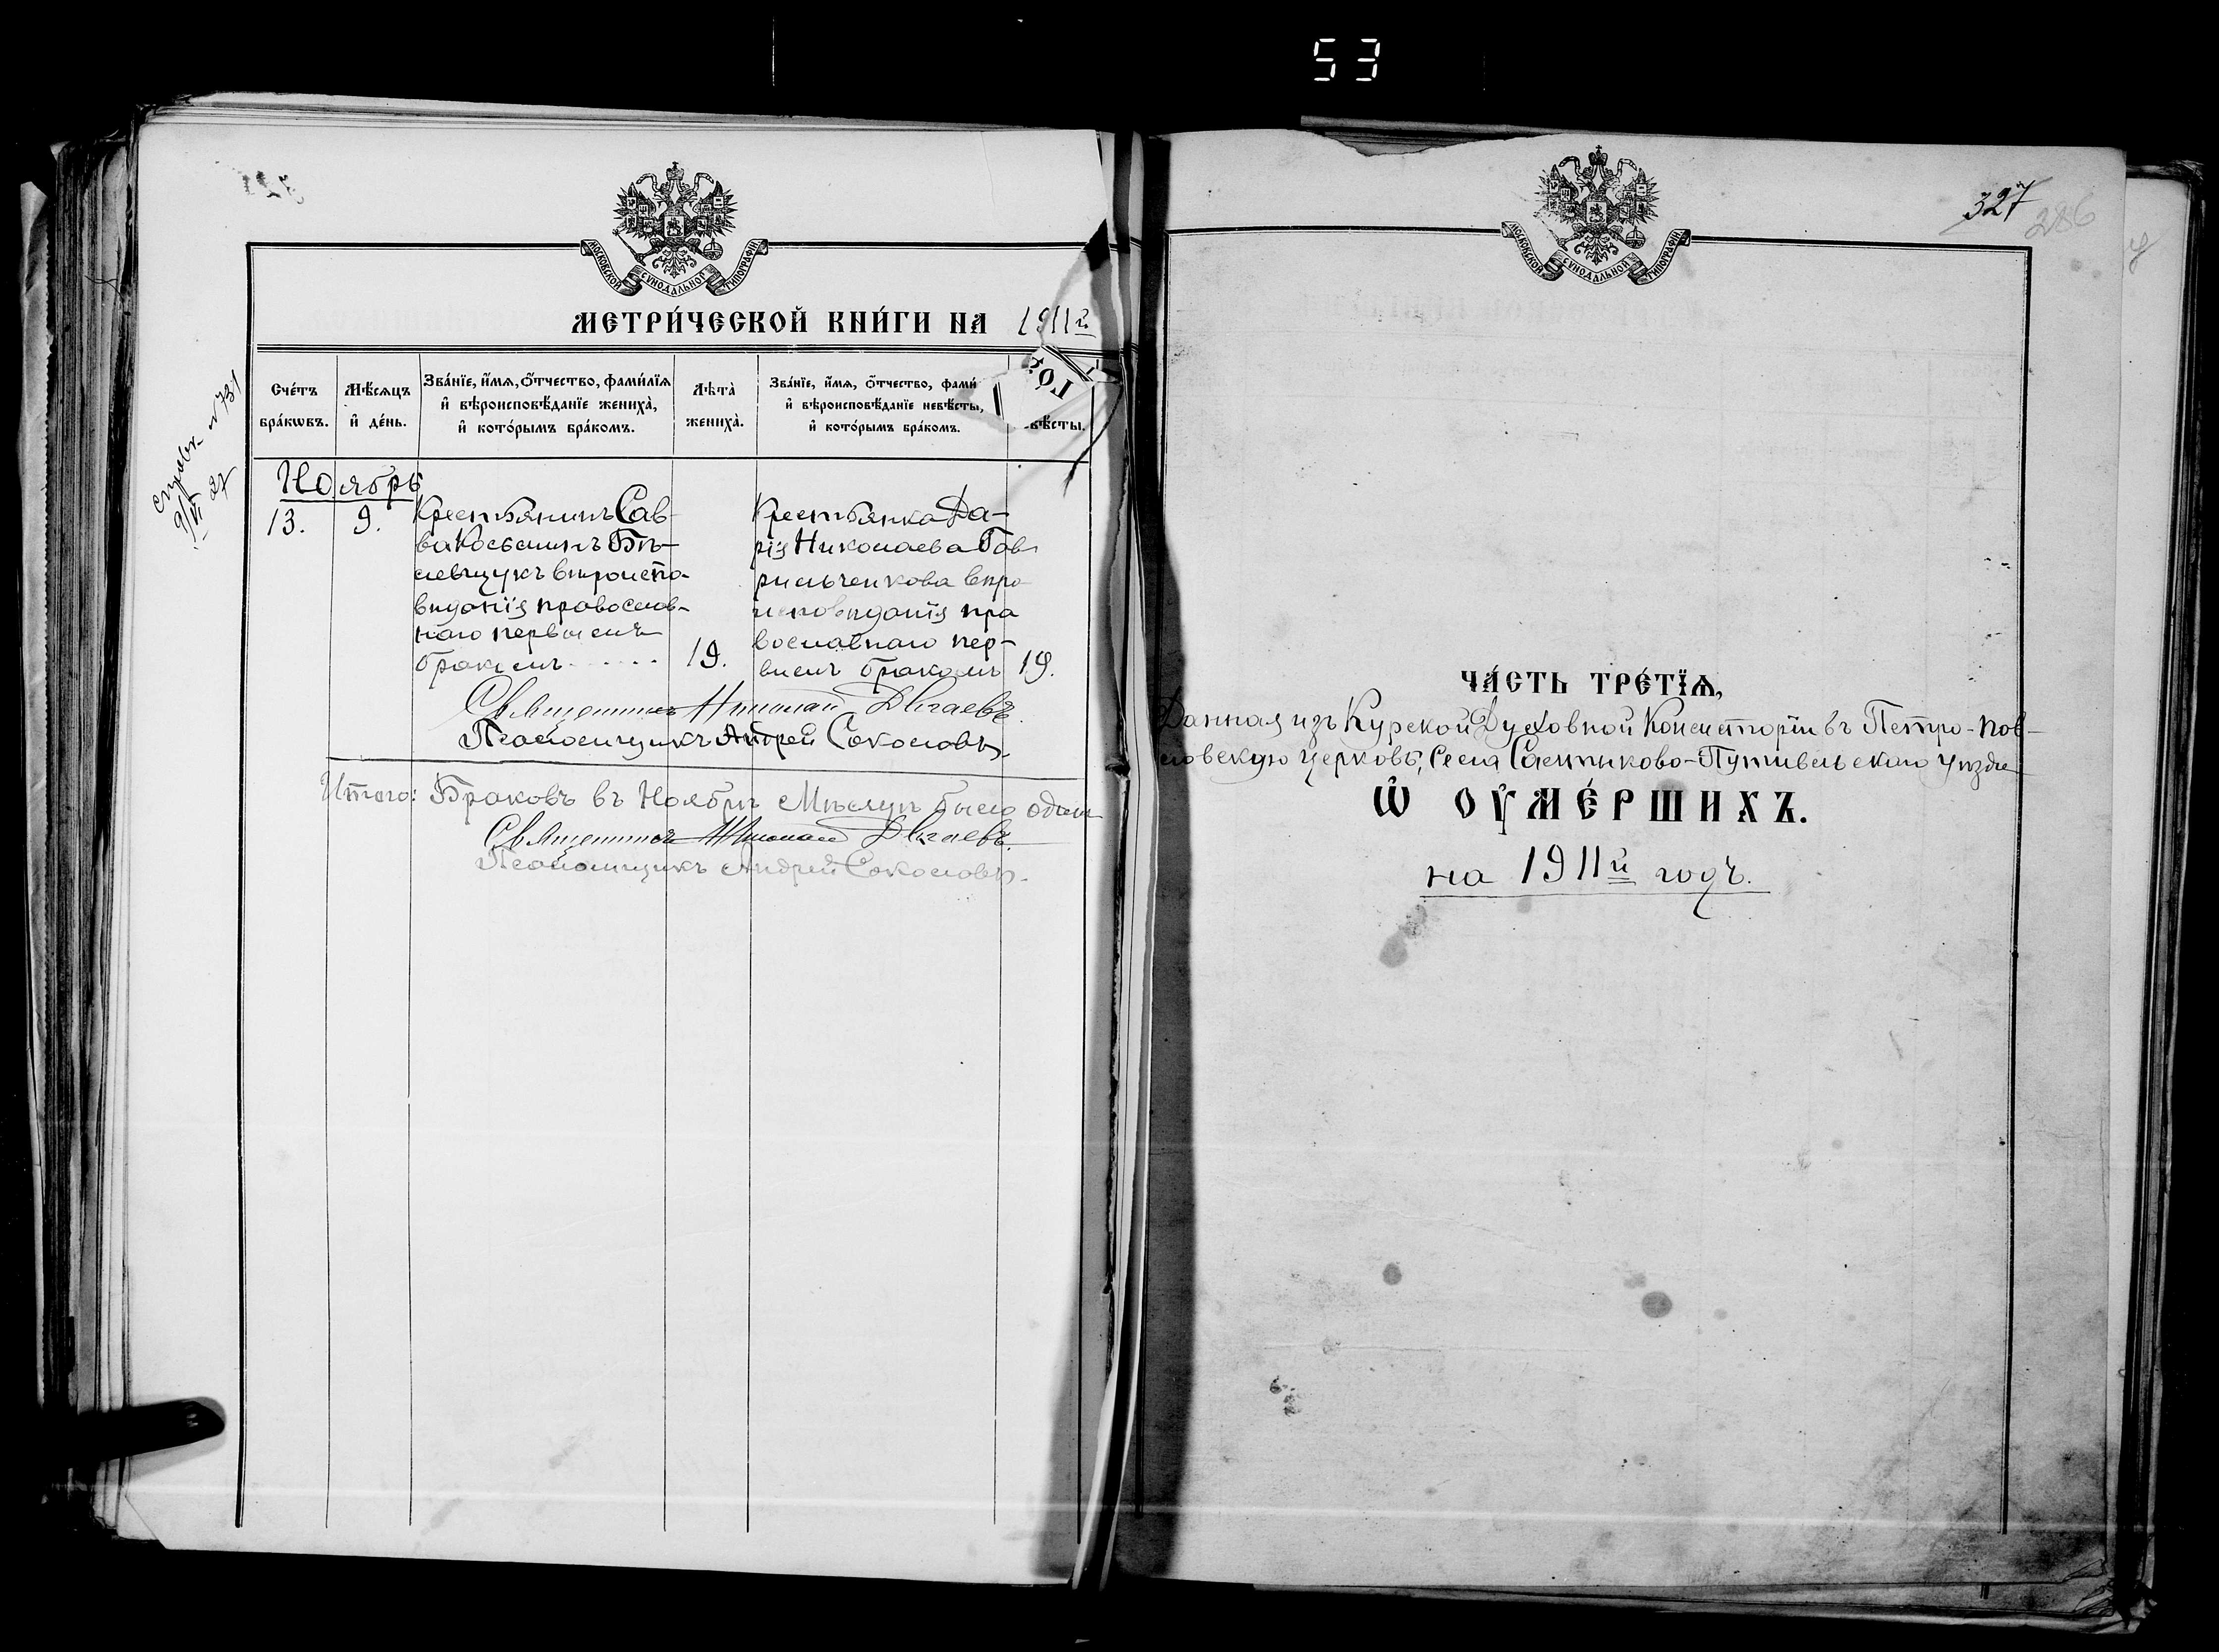 53
МОСКОВСКОЙ СѴНОДАЛЬНОЙ ТИПОГРАФІИ
МЕТРИ́ЧЕСКОЙ КНИ́ГИ НА 1911й
ГО́
Сче́тъ бра́кѡвъ.
Мѣ́сяцъ и҆ де́нь.
Зва́нїе, и҆́мѧ, ѻ҆́тчество, фами́лїѧ
и҆ вѣроисповѣ́данїе жениха̀,
и҆ кото́рымъ бра́комъ.
Лѣта̀ жениха̀.
Зва́нїе, и҆́мѧ, ѻ҆́тчество, фами́
и҆ вѣроисповѣ́данїе невѣ́сты,
и҆ кото́рымъ бра́комъ.
вѣ́сты.
справк. № 731
Ноябрь
13. 9.
Крестьянинъ Сав-
ва Косьминъ Бѣ-
левщукъ вѣроиспо-
вѣданія православ-
наго первымъ
бракомъ 19.
Крестьянка Да-
рія Николаева Гав
рильченкова вѣро
исповѣданія пра
вославнаго пер-
вымъ бракомъ 19.
Священникъ Николай
Псаломщикъ Андрей Соколовъ.
Итого: Браковъ въ Ноябрѣ Мѣсяцѣ было одинъ
Священникъ Николай
Псаломщикъ Андрей Соколовъ.
327
286
МОСКОВСКОЙ СѴНОДАЛЬНОЙ ТИПОГРАФІИ
ЧА́СТЬ ТРЕ́ТЇѦ,
Данная изъ Курской Духовной Консисторіи въ Петро-Пав-
ловскую церковь, Села Путивльскаго уѣзда
Ѡ҆ ОУ҆МЕ́РШИХЪ.
на 1911й годъ.